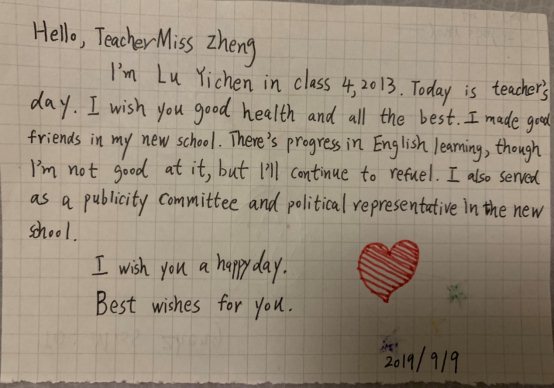 Hello, Teacher Miss Zheng
I'm Lu Yichen in class 4, 2013. Today is teacher's
day. I wish you good health and all the best. I made good
friends in my new school. There's progress in English learning, though
I'm not good at it, but I'll continue to refuel. I also served
as a publicity committee and political representative in the new
school.
I wish you a happy day.
Best wishes for you.
2019/9/9